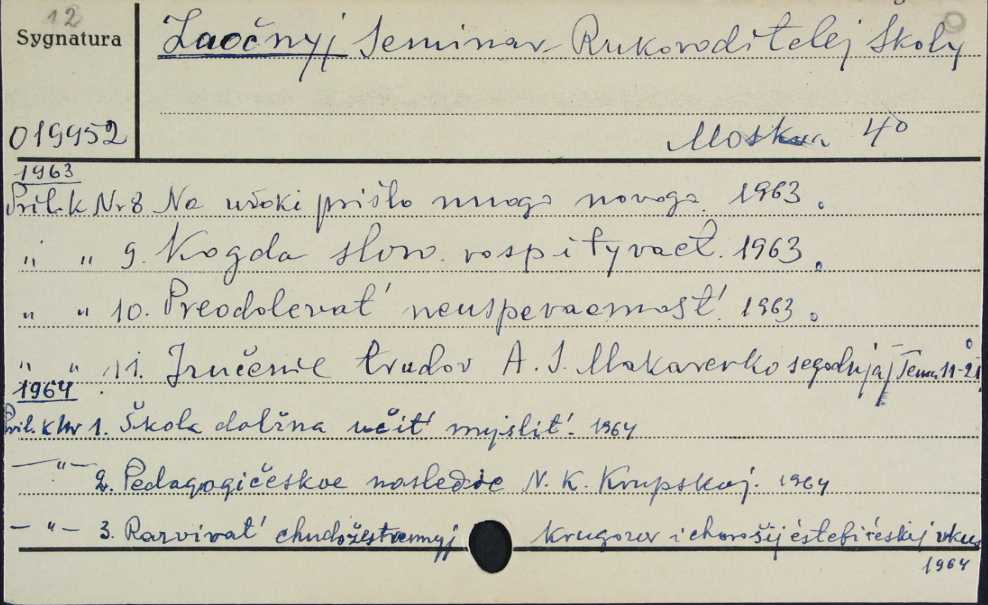 12
Sygnatura
Zaočnyj Seminar Rukovoditelej Školy
019952
Moskva 4°
1963
Pril. k Nr 8 Na uroki prišlo mnogo novogo. 1963.
" " 9. Kogda slovo vospityvaet. 1963.
" " 10. Preodolevat' neuspevaemost'. 1963.
" " 11. Izučenie trudov A. S. Makarenko segodnja
1964
Pril. k Nr 1. Škola dolžna učit' myslit'. 1964
— " — 2. Pedagogičeskoe nasledie N. K. Krupskoj. 1964
— " — 3. Razvivat' chudožestvennyj krugozor i chorošij éstetičeskij vkus
1964